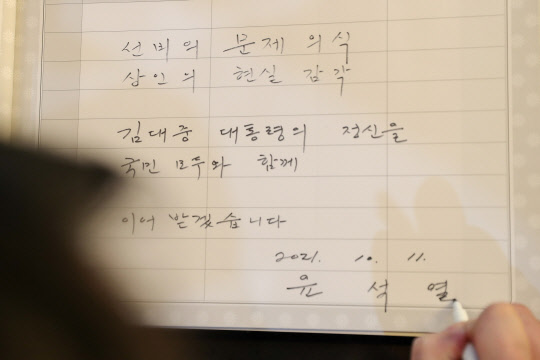 선비의 문제 의식
상인의 현실 감각
김대중 대통령의 정신을
국민 모두와 함께
이어 받겠습니다
2021. 10. 11.
윤 석 열